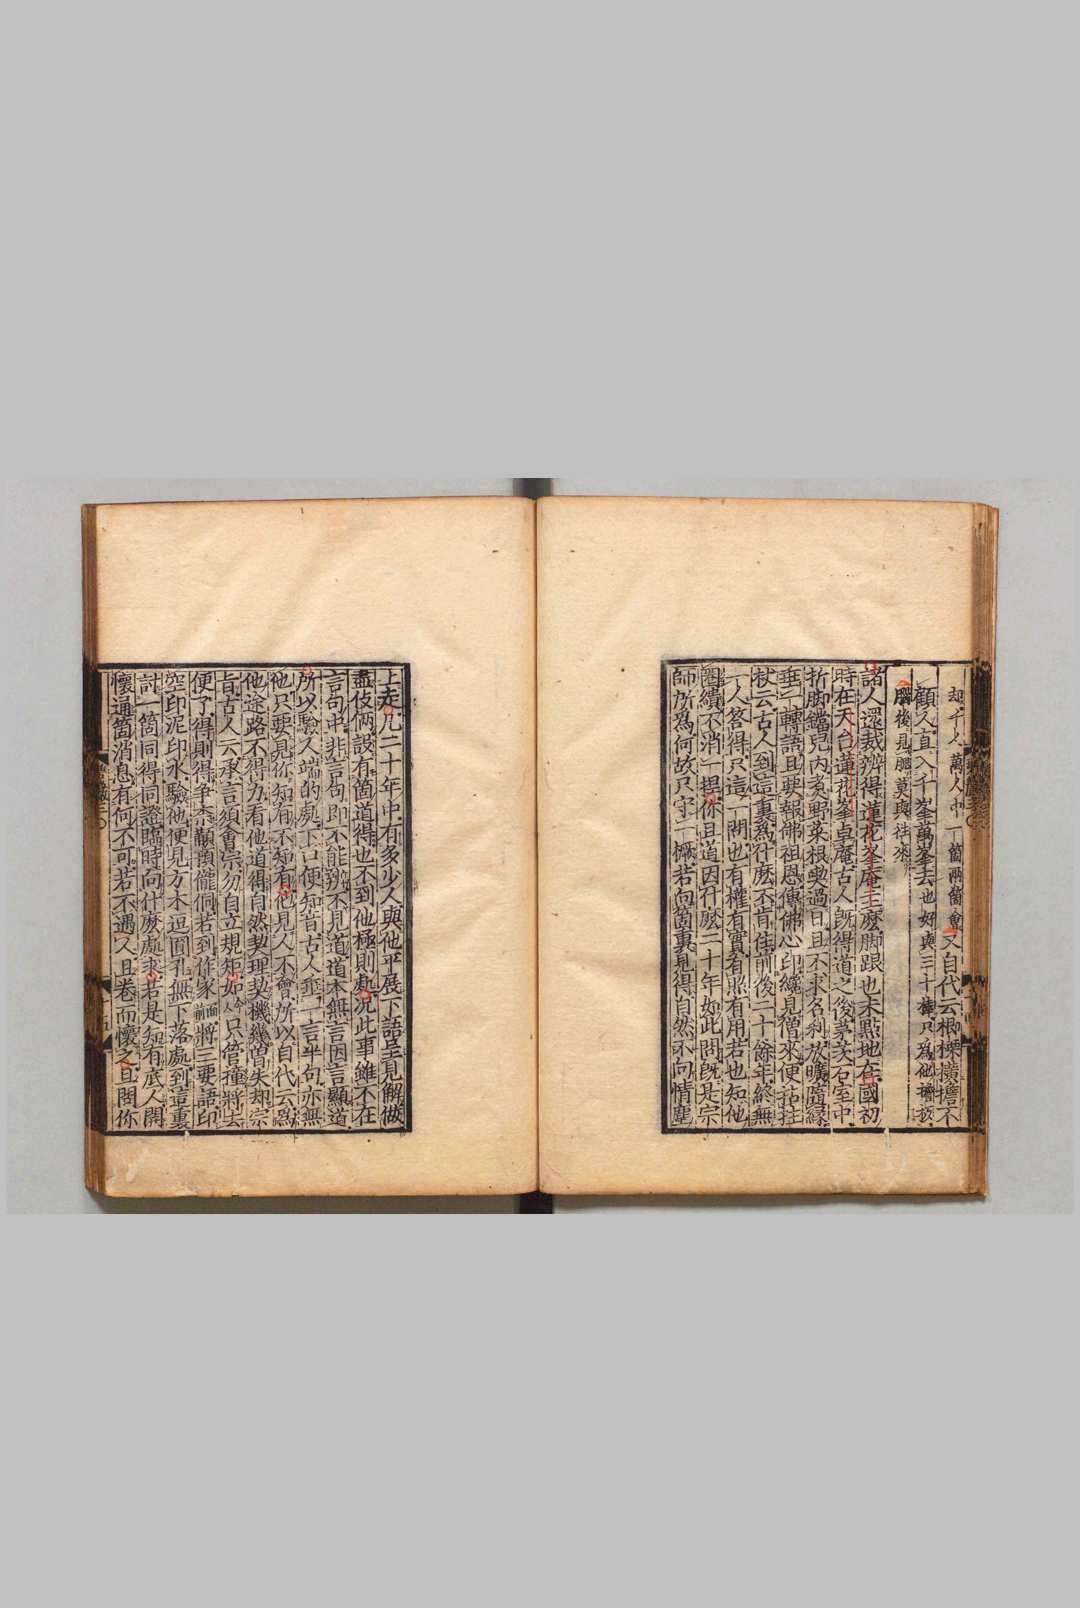 却千人萬人中一箇兩箇會又自代云楖𣗖橫擔不
顧人直入千峯萬峯去也好與三十棒只爲他擔板
腦後見腮莫與往來
諸人還裁辨得蓮花峯庵主麽脚跟也未點地在國初
時在天台蓮花峯卓庵古人旣得道之後茅茨石室中
折脚鐺兒内煑野菜根喫過日且不求名利放曠隨緣
垂一轉語且要報佛祖恩傳佛心印纔見僧來便拈拄
杖云古人到這裏爲什麽不肯住前後二十餘年終無
一人答得只這一問也有權有實有照有用若也知他
圈繢不消一揑你且道因什麽二十年如此問旣是宗
師所爲何故只守一橛若向箇裏見得自然不向情塵
上走凡二十年中有多少人與他平展下語呈見解做
盡伎倆設有箇道得也不到他極則處況此事雖不在
言句中非言句即不能辨不見道道本無言因言顯道
所以驗人端的處下口便知音古人垂一言半句亦無
他只要見你知有不知有他見人不會所以自代云爲
他途路不得力看他道得自然契理契機幾曾失却宗
旨古人云承言須會宗勿自立規矩如今人只管撞將去
便了得則得爭柰顢頇儱侗若到作家面前將三要語印
空印泥印水驗他便見方木逗圓孔無下落處到這裏
討一箇同得同證臨時向什麽處求若是知有底人開
懷通箇消息有何不可若不遇人且卷而懷之且問你